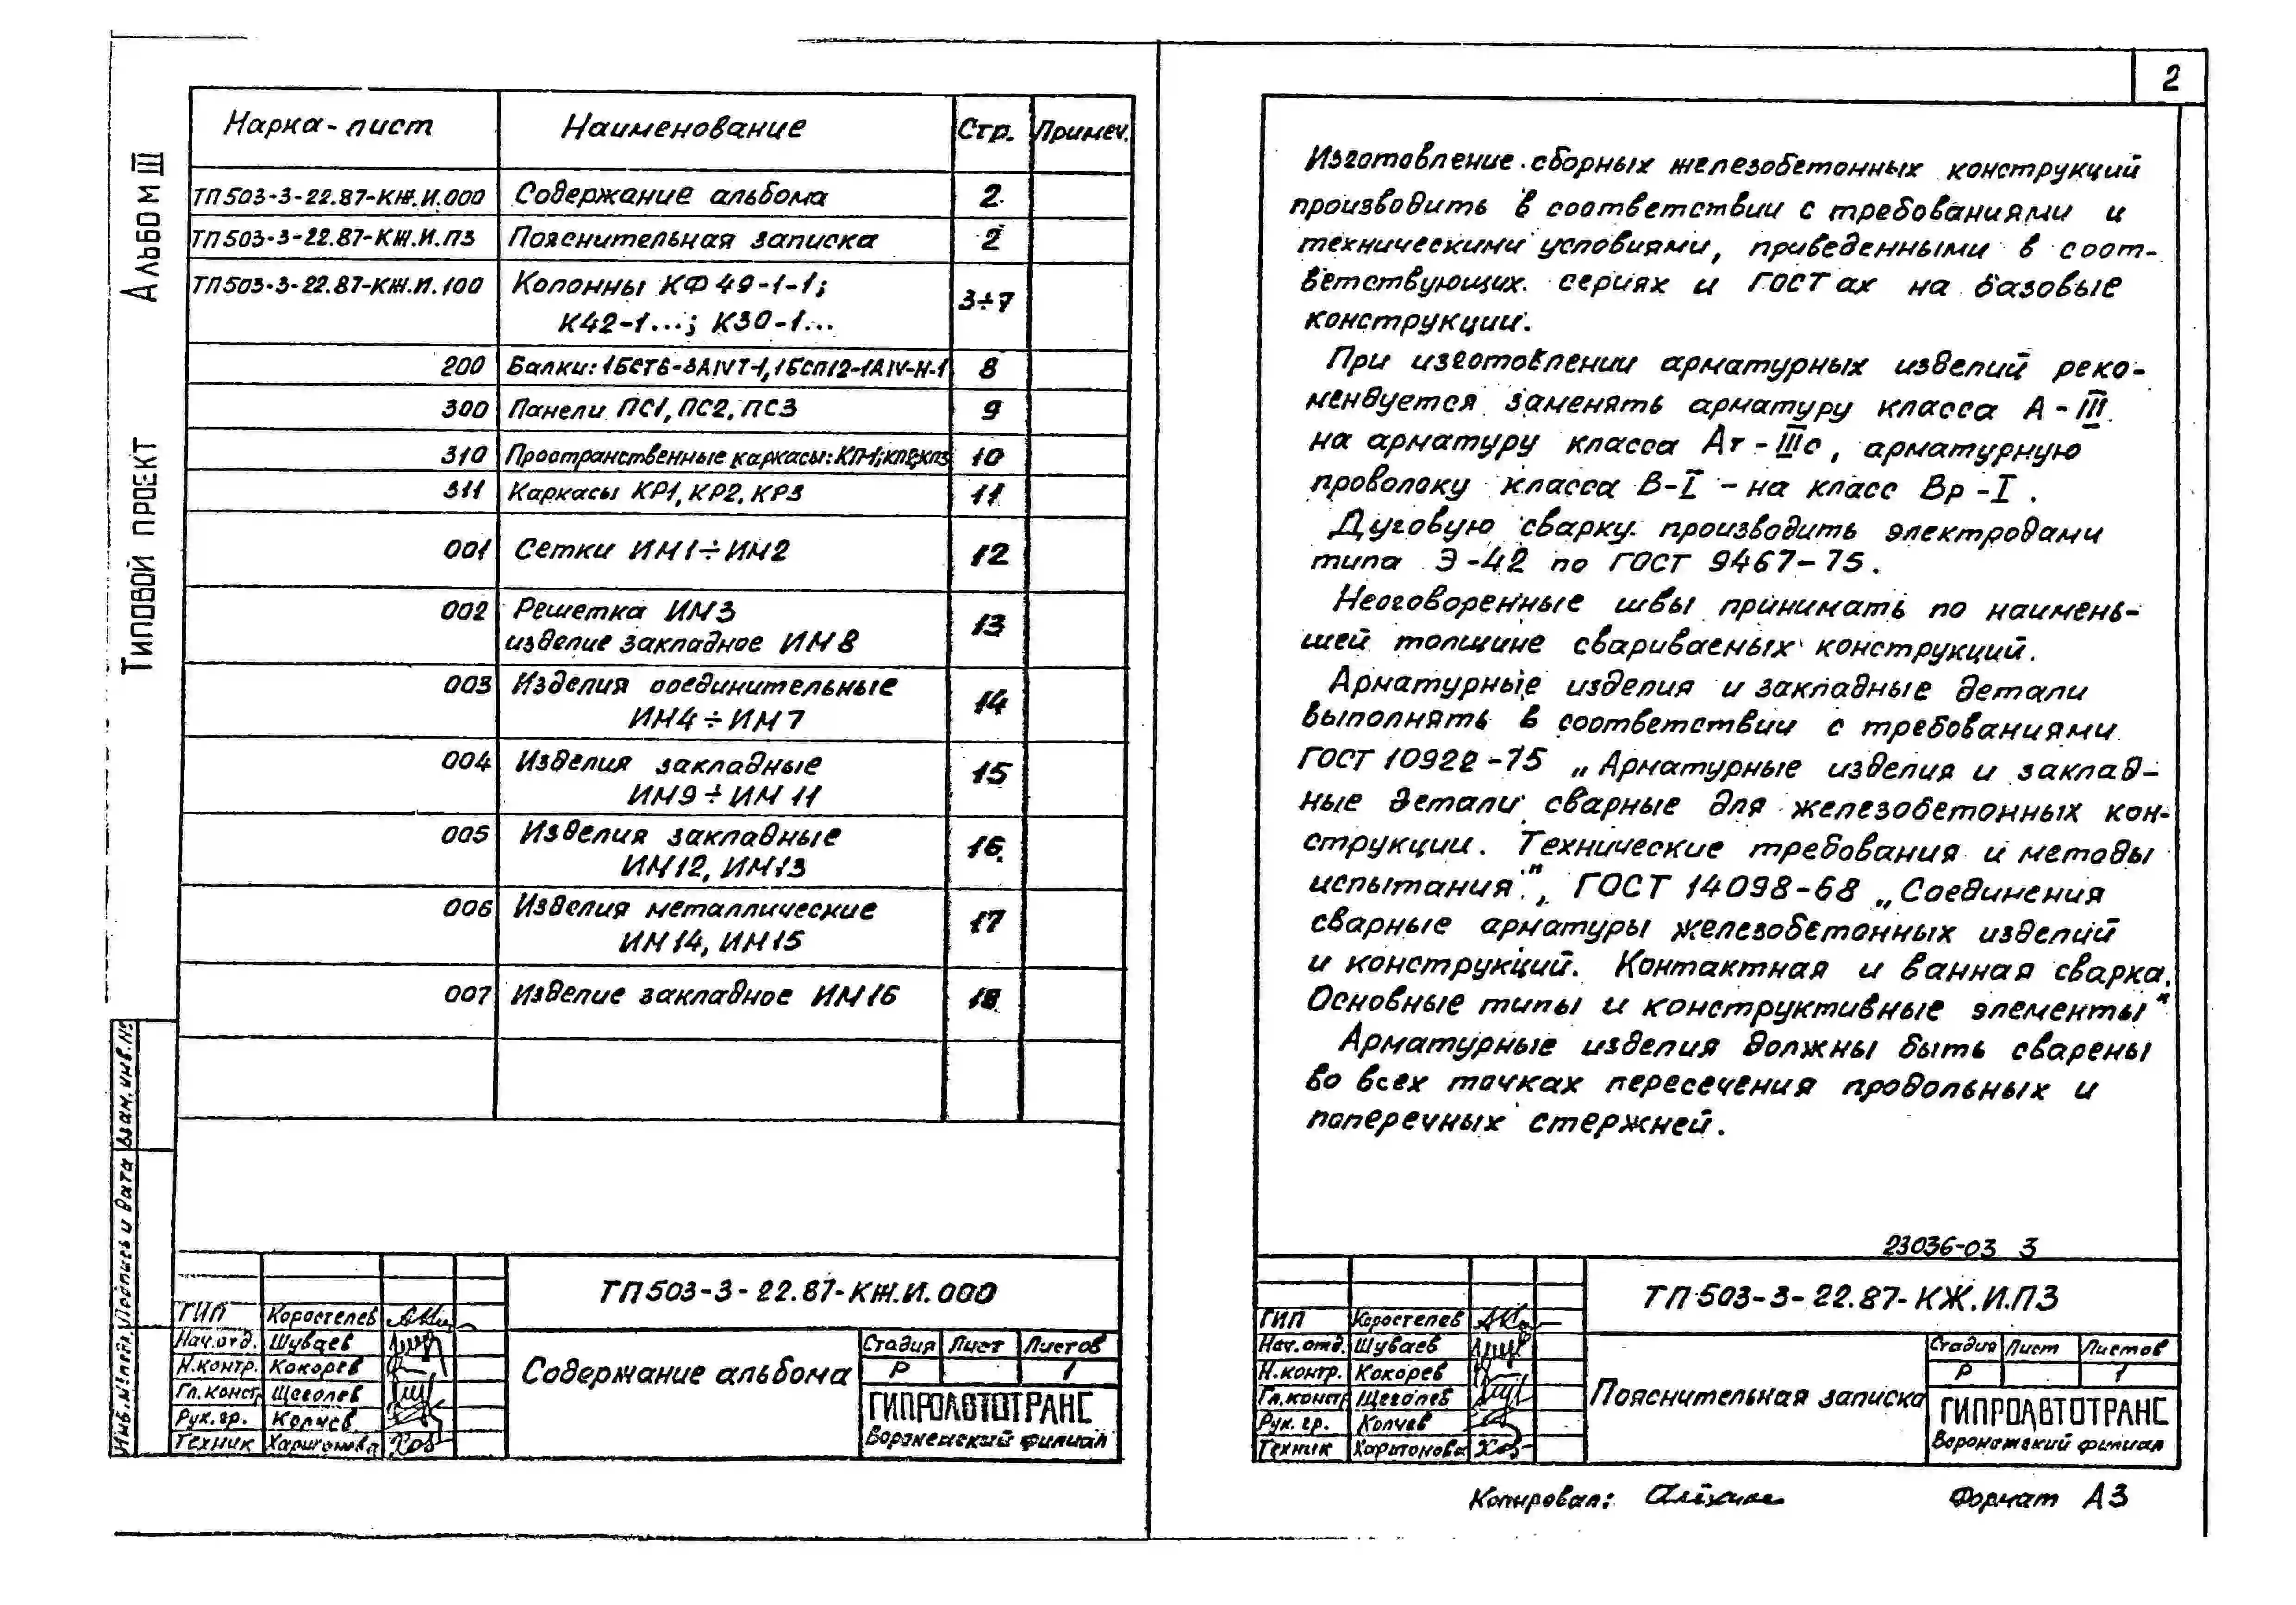 Альбом III
Типовой проект
Марка-лист Наименование Стр. Примеч.
ТП503-3-22.87-КЖ.И.000 Содержание альбома 2
ТП503-3-22.87-КЖ.И.ПЗ Пояснительная записка 2
ТП503-3-22.87-КЖ.И.100 Колонны КФ49-1-1; 3÷7
К42-1...; К30-1...
200 Балки: 1БСТ6-3АIVТ-1, 1БСП12-1АIV-Н-1 8
300 Панели ПС1, ПС2, ПС3 9
310 Пространственные каркасы: КП1; КП2; КП3 10
311 Каркасы КР1, КР2, КР3 11
001 Сетки ИМ1÷ИМ2 12
002 Решетка ИМ3 13
изделие закладное ИМ8
003 Изделия соединительные 14
ИМ4÷ИМ7
004 Изделия закладные 15
ИМ9÷ИМ11
005 Изделия закладные 16
ИМ12, ИМ13
006 Изделия металлические 17
ИМ14, ИМ15
007 Изделие закладное ИМ16 18
Инв.№подл. Подпись и дата Взам.инв.№
ТП503-3-22.87-КЖ.И.000
ГИП Коростелев
Нач.отд. Шуваев
Н.контр. Кокорев
Гл.констр. Щеголев
Рук.гр. Колчев
Техник Харитонова
Содержание альбома
Стадия Лист Листов
Р 1
ГИПРОАВТОТРАНС
Воронежский филиал
2
Изготовление сборных железобетонных конструкций
производить в соответствии с требованиями и
техническими условиями, приведенными в соот-
ветствующих сериях и ГОСТах на базовые
конструкции.
При изготовлении арматурных изделий реко-
мендуется заменять арматуру класса А-III
на арматуру класса Ат-IIIс, арматурную
проволоку класса В-I - на класс Вр-I.
Дуговую сварку производить электродами
типа Э-42 по ГОСТ 9467-75.
Неоговоренные швы принимать по наимень-
шей толщине свариваемых конструкций.
Арматурные изделия и закладные детали
выполнять в соответствии с требованиями
ГОСТ 10922-75 „Арматурные изделия и заклад-
ные детали сварные для железобетонных кон-
струкции. Технические требования и методы
испытания.", ГОСТ 14098-68 „Соединения
сварные арматуры железобетонных изделий
и конструкций. Контактная и ванная сварка.
Основные типы и конструктивные элементы"
Арматурные изделия должны быть сварены
во всех точках пересечения продольных и
поперечных стержней.
23036-03 3
ТП503-3-22.87-КЖ.И.ПЗ
ГИП Коростелев
Нач.отд. Шуваев
Н.контр. Кокорев
Гл.констр Щеголев
Рук.гр. Колчев
Техник Харитонова
Пояснительная записка
Стадия Лист Листов
Р 1
ГИПРОАВТОТРАНС
Воронежский филиал
Копировал: Формат А3